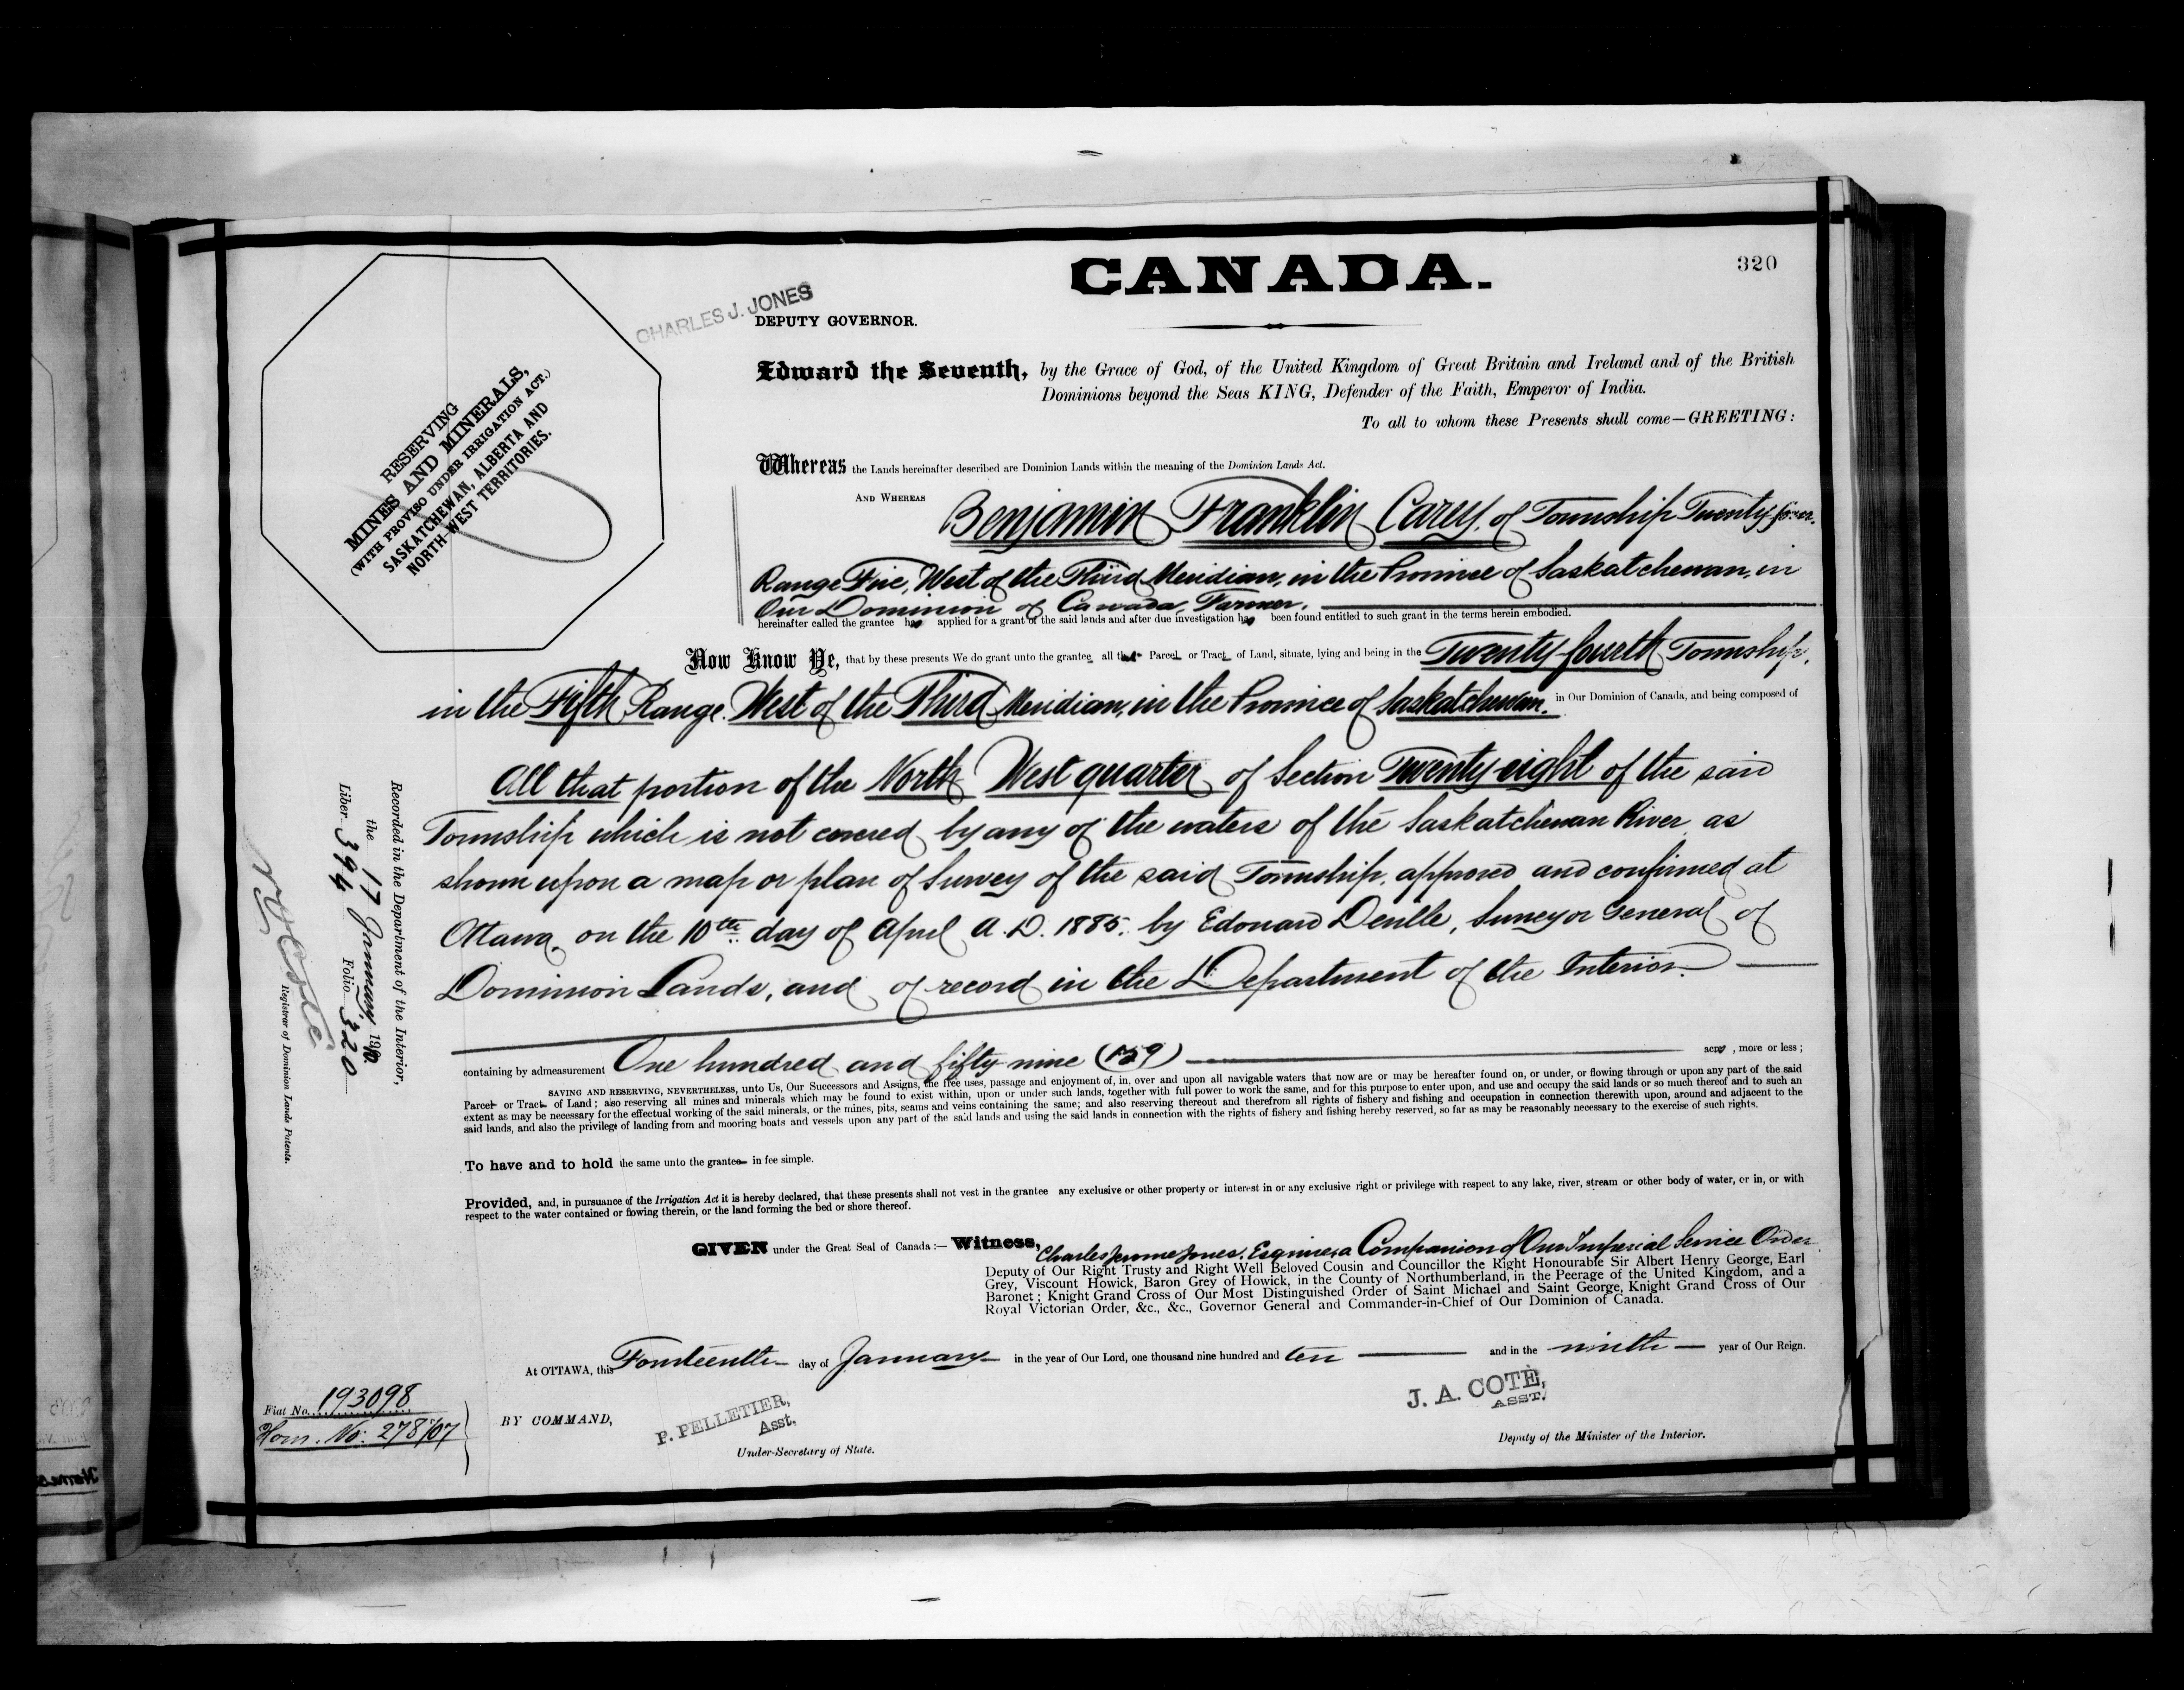 320
CANADA.
CHARLES J. JONES
DEPUTY GOVERNOR.
RESERVING
MINES AND MINERALS,
(WITH PROVISO UNDER IRRIGATION ACT.)
SASKATCHEWAN, ALBERTA AND
NORTH-WEST TERRITORIES.
Edward the Seventh, by the Grace of God, of the United Kingdom of Great Britain and Ireland and of the British
Dominions beyond the Seas KING, Defender of the Faith, Emperor of India.
To all to whom these Presents shall come—GREETING:
Whereas the Lands hereinafter described are Dominion Lands within the meaning of the Dominion Lands Act.
AND WHEREAS Benjamin Franklin Carey, of Township Twenty-four,
Range Five, West of the Third Meridian, in the Province of Saskatchewan, in
Our Dominion of Canada, Farmer,
hereinafter called the grantee has applied for a grant of the said lands and after due investigation has been found entitled to such grant in the terms herein embodied.
Now Know Ye, that by these presents We do grant unto the grantee all that Parcel or Tract of Land, situate, lying and being in the Twenty-fourth Township,
in the Fifth Range West of the Third Meridian, in the Province of Saskatchewan. in Our Dominion of Canada, and being composed of
All that portion of the North West quarter of Section Twenty-eight of the said
Township which is not covered by any of the waters of the Saskatchewan River as
shown upon a map or plan of Survey of the said Township, approved and confirmed at
Ottawa, on the 10th day of April A.D. 1885, by Edouard Deville, Surveyor General of
Dominion Lands, and of record in the Department of the Interior.
containing by admeasurement One hundred and fifty-nine (159) acres, more or less;
SAVING AND RESERVING, NEVERTHELESS, unto Us, Our Successors and Assigns, the free uses, passage and enjoyment of, in, over and upon all navigable waters that now are or may be hereafter found on, or under, or flowing through or upon any part of the said
Parcel or Tract of Land; also reserving all mines and minerals which may be found to exist within, upon or under such lands, together with full power to work the same, and for this purpose to enter upon, and use and occupy the said lands or so much thereof and to such an
extent as may be necessary for the effectual working of the said minerals, or the mines, pits, seams and veins containing the same; and also reserving thereout and therefrom all rights of fishery and fishing and occupation in connection therewith upon, around and adjacent to the
said lands, and also the privilege of landing from and mooring boats and vessels upon any part of the said lands and using the said lands in connection with the rights of fishery and fishing hereby reserved, so far as may be reasonably necessary to the exercise of such rights.
To have and to hold the same unto the grantee in fee simple.
Provided, and, in pursuance of the Irrigation Act it is hereby declared, that these presents shall not vest in the grantee any exclusive or other property or interest in or any exclusive right or privilege with respect to any lake, river, stream or other body of water, or in, or with
respect to the water contained or flowing therein, or the land forming the bed or shore thereof.
GIVEN under the Great Seal of Canada:— Witness, Charles Jerome Jones, Esquire, a Companion of Our Imperial Service Order
Deputy of Our Right Trusty and Right Well Beloved Cousin and Councillor the Right Honourable Sir Albert Henry George, Earl
Grey, Viscount Howick, Baron Grey of Howick, in the County of Northumberland, in the Peerage of the United Kingdom, and a
Baronet; Knight Grand Cross of Our Most Distinguished Order of Saint Michael and Saint George, Knight Grand Cross of Our
Royal Victorian Order, &c., &c., Governor General and Commander-in-Chief of Our Dominion of Canada.
At OTTAWA, this Fourteenth day of January in the year of Our Lord, one thousand nine hundred and ten and in the ninth year of Our Reign.
BY COMMAND,
P. PELLETIER,
Asst.
Under-Secretary of State.
J. A. COTÉ,
ASST.
Deputy of the Minister of the Interior.
Fiat No. 193098
Hom. No. 278/07
Recorded in the Department of the Interior,
the 17 January, 1910
Liber 394 Folio 320
Registrar of Dominion Lands Patents.